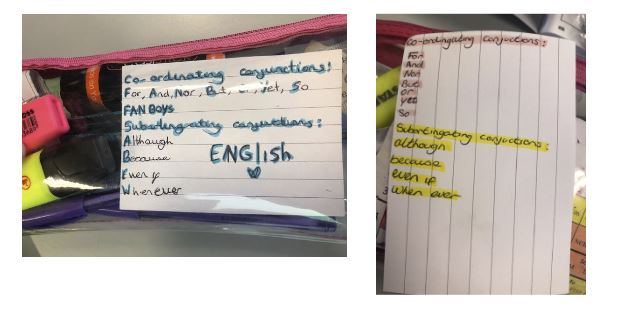 Co-ordinating conjunctions:
For, And, Nor, But, or, Yet, So
FAN BOYS
Subordinating conjunctions:
Although
Because
Even if
Whenever
ENGlish
Co-ordingating conjuctions:
For
And
Nor
But
or
yet
So
Subordingating conjuctions:
although
because
even if
when ever